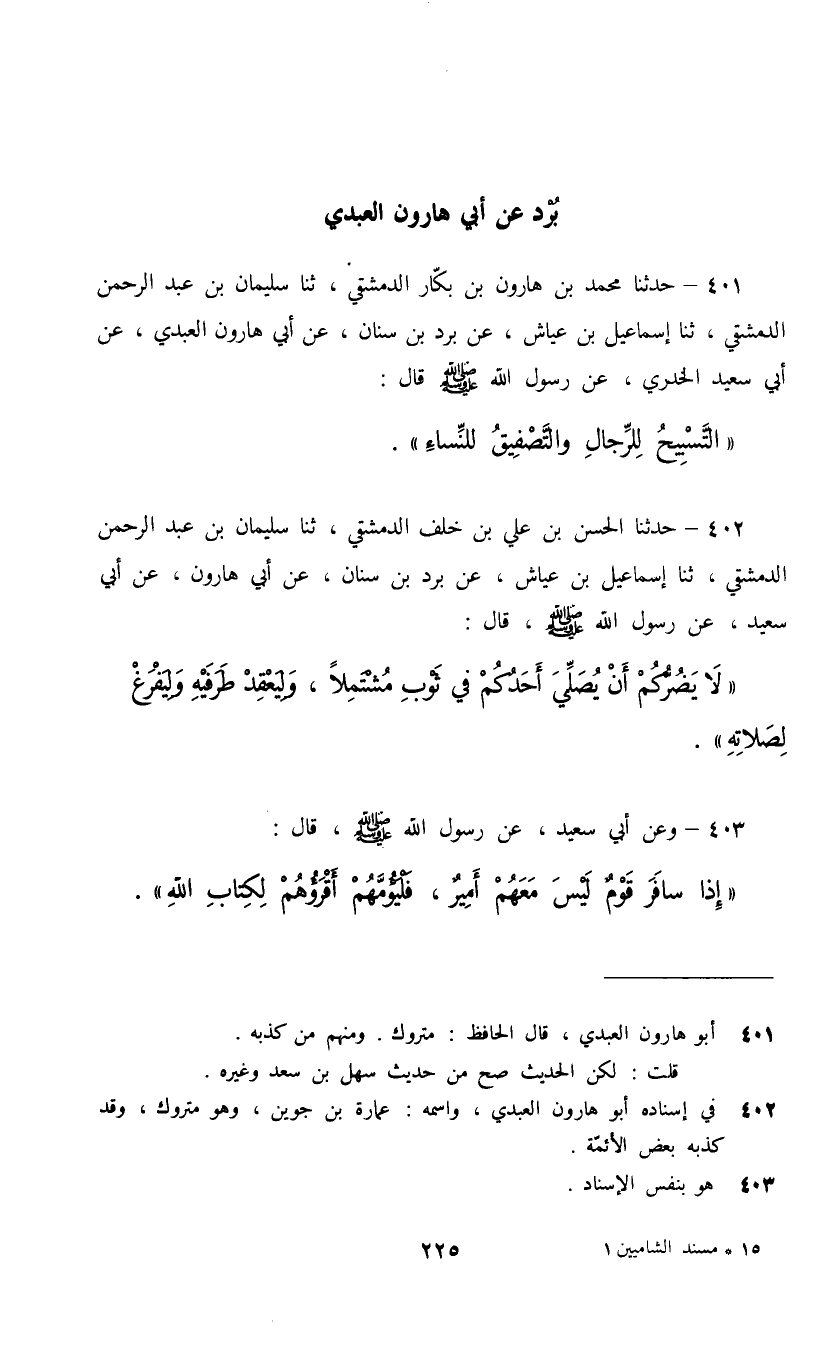 بُرْد عن أبي هارون العبدي
٤٠١ – حدثنا محمد بن هارون بن بكّار الدمشقي ، ثنا سليمان بن عبد الرحمن
الدمشقي ، ثنا إسماعيل بن عياش ، عن برد بن سنان ، عن أبي هارون العبدي ، عن
أبي سعيد الخدري ، عن رسول الله ﷺ قال :
« التَّسْبِيحُ لِلرِّجالِ والتَّصْفِيقُ للنِّساءِ » .
٤٠٢ – حدثنا الحسن بن علي بن خلف الدمشقي ، ثنا سليمان بن عبد الرحمن
الدمشقي ، ثنا إسماعيل بن عياش ، عن برد بن سنان ، عن أبي هارون ، عن أبي
سعيد ، عن رسول الله ﷺ ، قال :
« لَا يَضُرُّكُمْ أَنْ يُصَلِّيَ أَحَدُكُمْ في ثَوْبٍ مُشْتَمِلاً ، وَلِيَعْقِدْ طَرَفَيْهِ وَلِيَفْرُغْ
لِصَلاتِهِ » .
٤٠٣ – وعن أبي سعيد ، عن رسول الله ﷺ ، قال :
« إِذا سافَرَ قَوْمٌ لَيْسَ مَعَهُمْ أَمِيرٌ ، فَلْيَؤُمَّهُمْ أَقْرَؤُهُمْ لِكِتابِ اللهِ » .
٤٠١ أبو هارون العبدي ، قال الحافظ : متروك . ومنهم من كذبه .
قلت : لكن الحديث صح من حديث سهل بن سعد وغيره .
٤٠٢ في إسناده أبو هارون العبدي ، واسمه : عمارة بن جوين ، وهو متروك ، وقد
كذبه بعض الأئمّة .
٤٠٣ هو بنفس الإسناد .
١٥ * مسند الشاميين ١ ٢٢٥